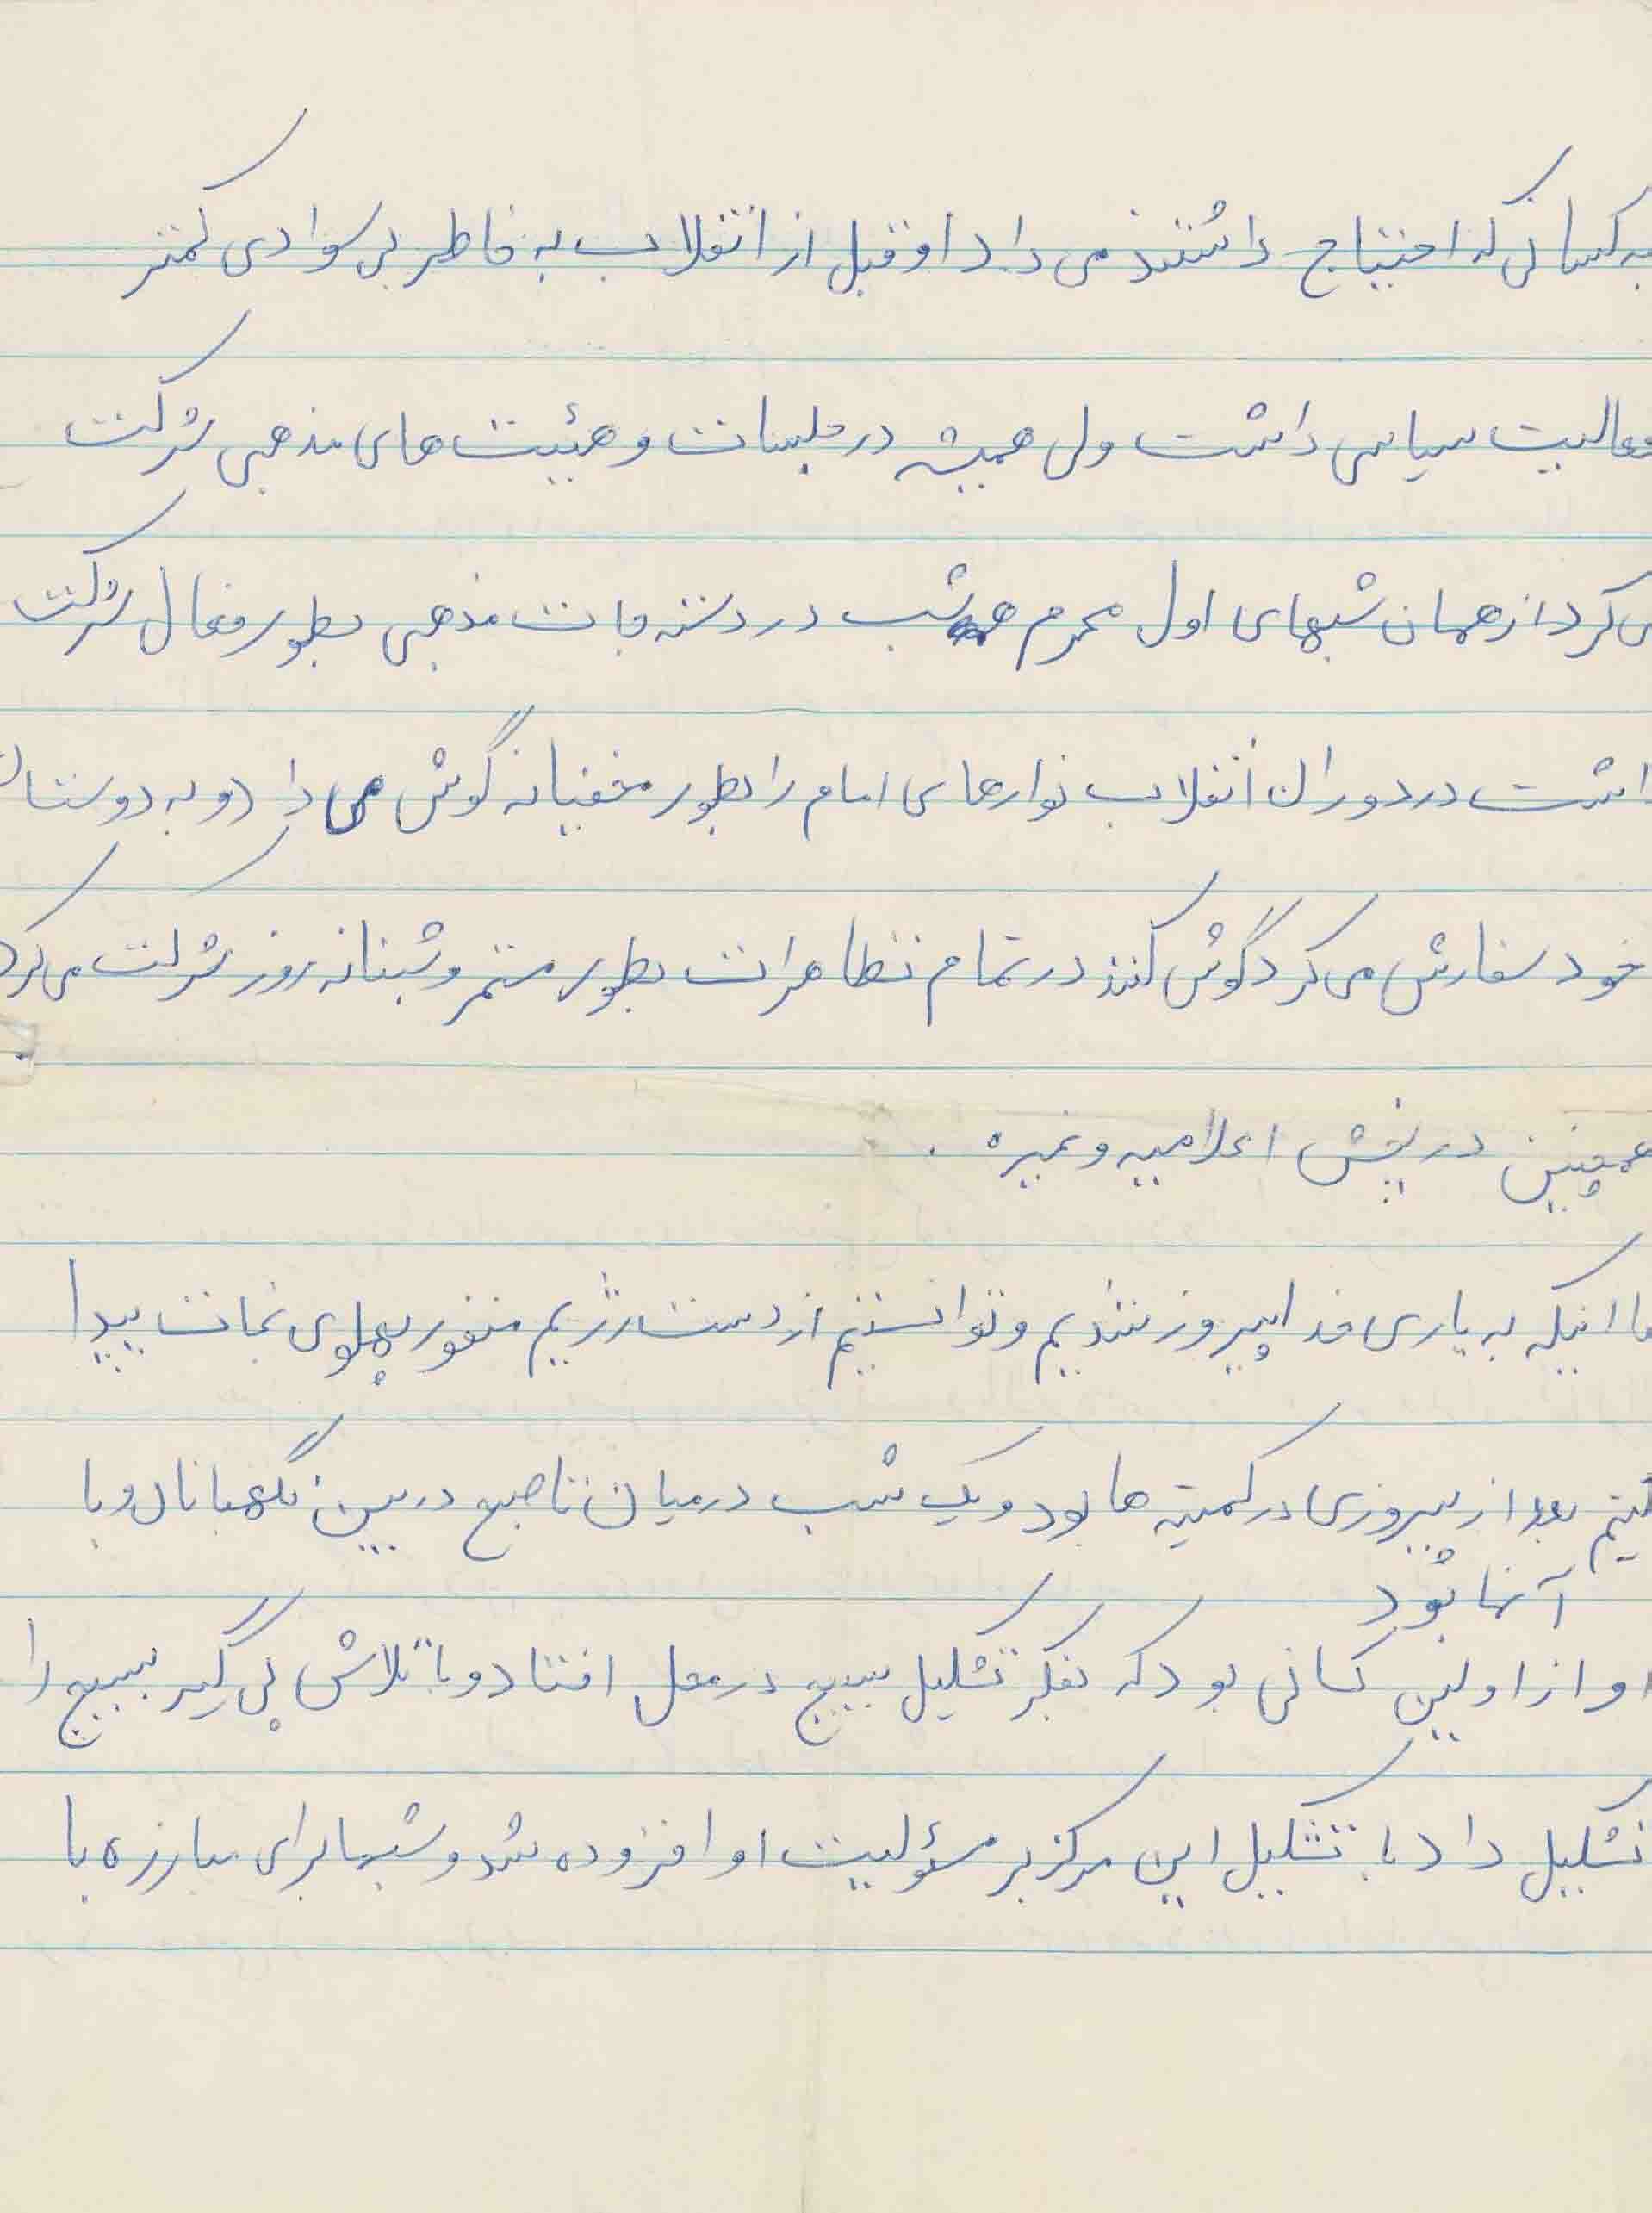 به کسانی که احتیاج داشتند می داد او قبل از انقلاب به خاطر بی سوادی کمتر
فعالیت سیاسی داشت ولی همیشه در جلسات و هیئت های مذهبی شرکت
می کرد از همان شبهای اول محرم هر شب در دسته جات مذهبی بطور فعال شرکت
داشت در دوران انقلاب نوارهای امام را بطور مخفیانه گوش می داد و به دوستان
خود سفارش می کرد گوش کنند در تمام تظاهرات بطور مستمر و شبانه روز شرکت می کرد
همچنین در پخش اعلامیه و غیره .
تا اینکه به یاری خدا پیروز شدیم و توانستیم از دست رژیم منفور پهلوی نجات پیدا
کنیم بعد از پیروزی در کمیته ها بود و یک شب در میان تا صبح در بین نگهبانان و با
آنها بود
او از اولین کسانی بود که بفکر تشکیل بسیج در محل افتاد و با تلاش پی گیر بسیج را
تشکیل داد با تشکیل این مرکز بر مسؤلیت او افزوده شد و شبها برای مبارزه با